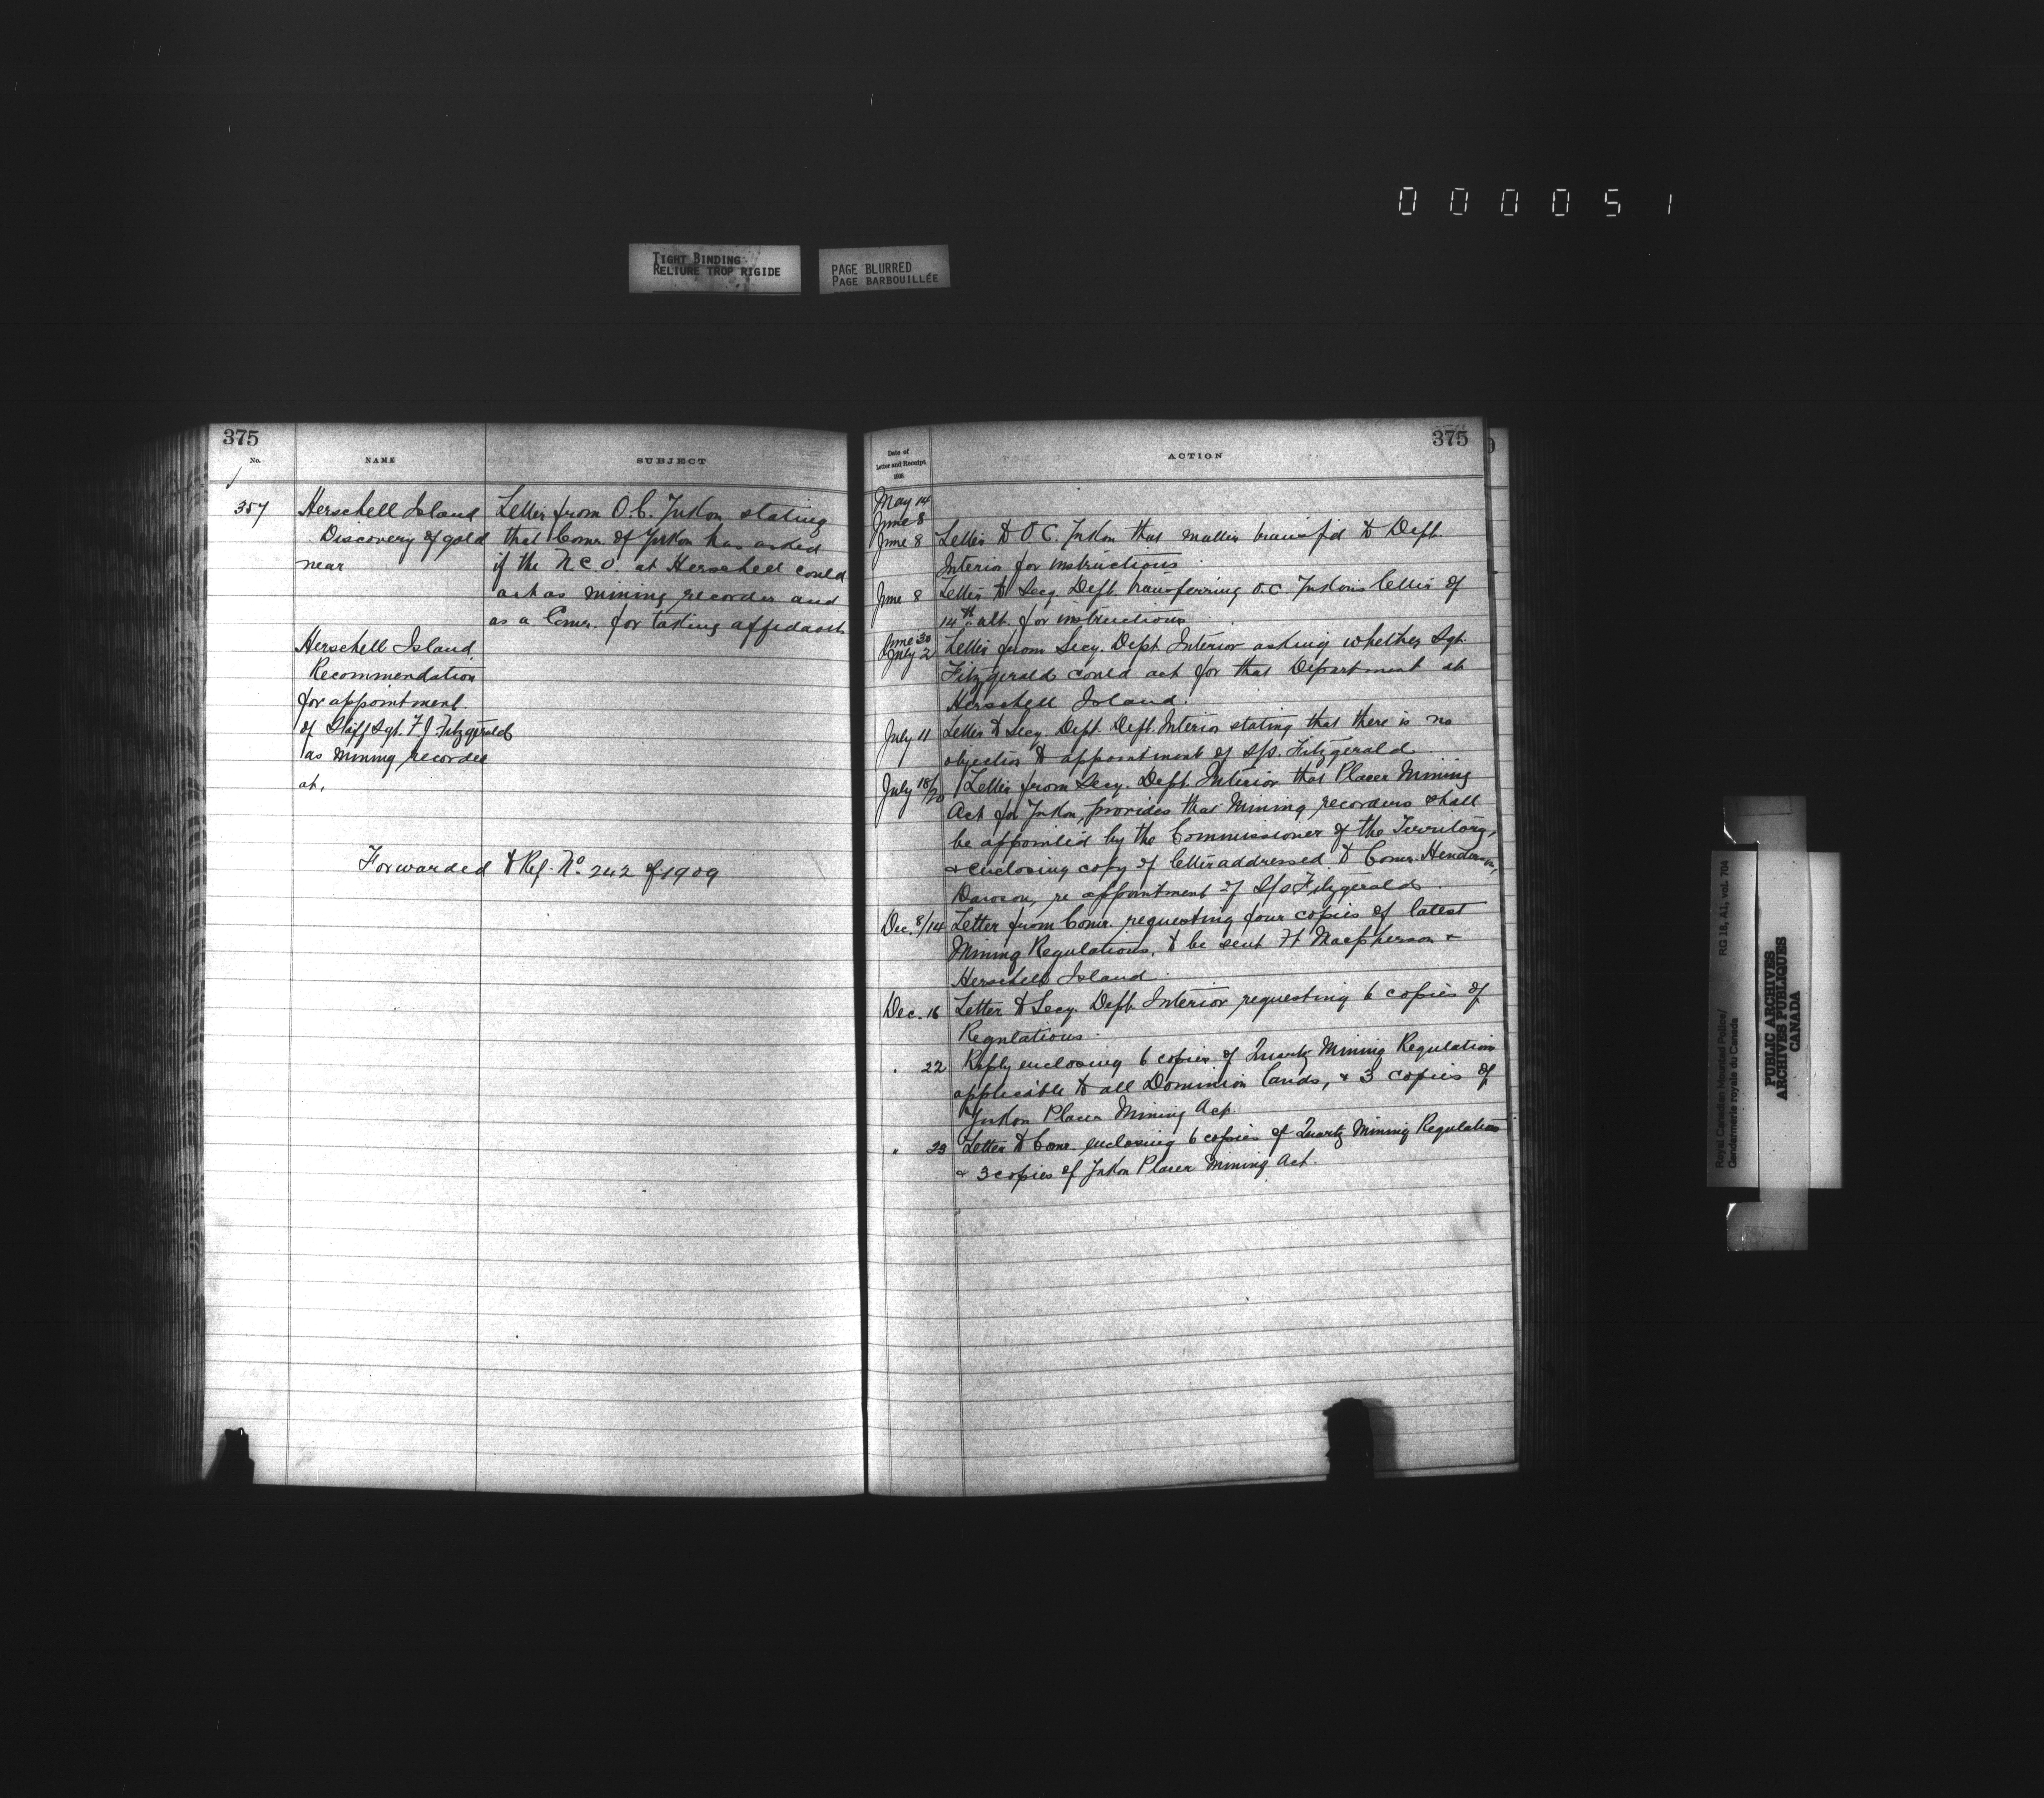 000051
TIGHT BINDING
RELIURE TROP RIGIDE
PAGE BLURRED
PAGE BARBOUILLÉE
375
No.
NAME
SUBJECT
357
Herschell Island
Discovery of gold
near
Letter from O.C. Yukon stating
that Comr. of Yukon has asked
if the N C O. at Herschell could
act as mining recorder and
as a Comr. for taking affidavits
Herschell Island
Recommendation
for appointment
of Staff Sgt. F J Fitzgerald
as mining recorder
at,
Forwarded to Ref. No. 242 of 1909
375
Date of
Letter and Receipt
1908
ACTION
May 14
June 8
June 8 Letter to O C. Yukon that matter transf'd to Dept.
Interior for instructions
June 8 Letter to Secy. Dept. transferring O.C. Yukons letter of
14th ult. for instructions
June 30
July 2 Letter from Secy. Dept Interior asking whether Sgt.
Fitzgerald could act for that Department at
Herschell Island.
July 11 Letter to Secy. Dept. Dept. Interior stating that there is no
objection to appointment of S/S. Fitzgerald.
July 18/20 Letter from Secy. Dept. Interior that Placer Mining
Act for Yukon, provides that Mining recorders shall
be appointed by the Commissioner of the Territory,
& enclosing copy of letter addressed to Comr. Henderson,
Dawson, re appointment of S/S Fitzgerald.
Dec. 8/14 Letter from Comr. requesting four copies of latest
Mining Regulations, to be sent Ft Macpherson &
Herschell Island.
Dec. 16 Letter to Secy. Dept. Interior requesting 6 copies of
Regulations.
" 22 Reply enclosing 6 copies of Quartz Mining Regulations
applicable to all Dominion lands, & 3 copies of
Yukon Placer Mining Act.
" 23 Letter to Comr. enclosing 6 copies of Quartz Mining Regulations
& 3 copies of Yukon Placer Mining Act.
Royal Canadian Mounted Police/
Gendarmerie royale du Canada
RG 18, A1, vol. 704
PUBLIC ARCHIVES
ARCHIVES PUBLIQUES
CANADA